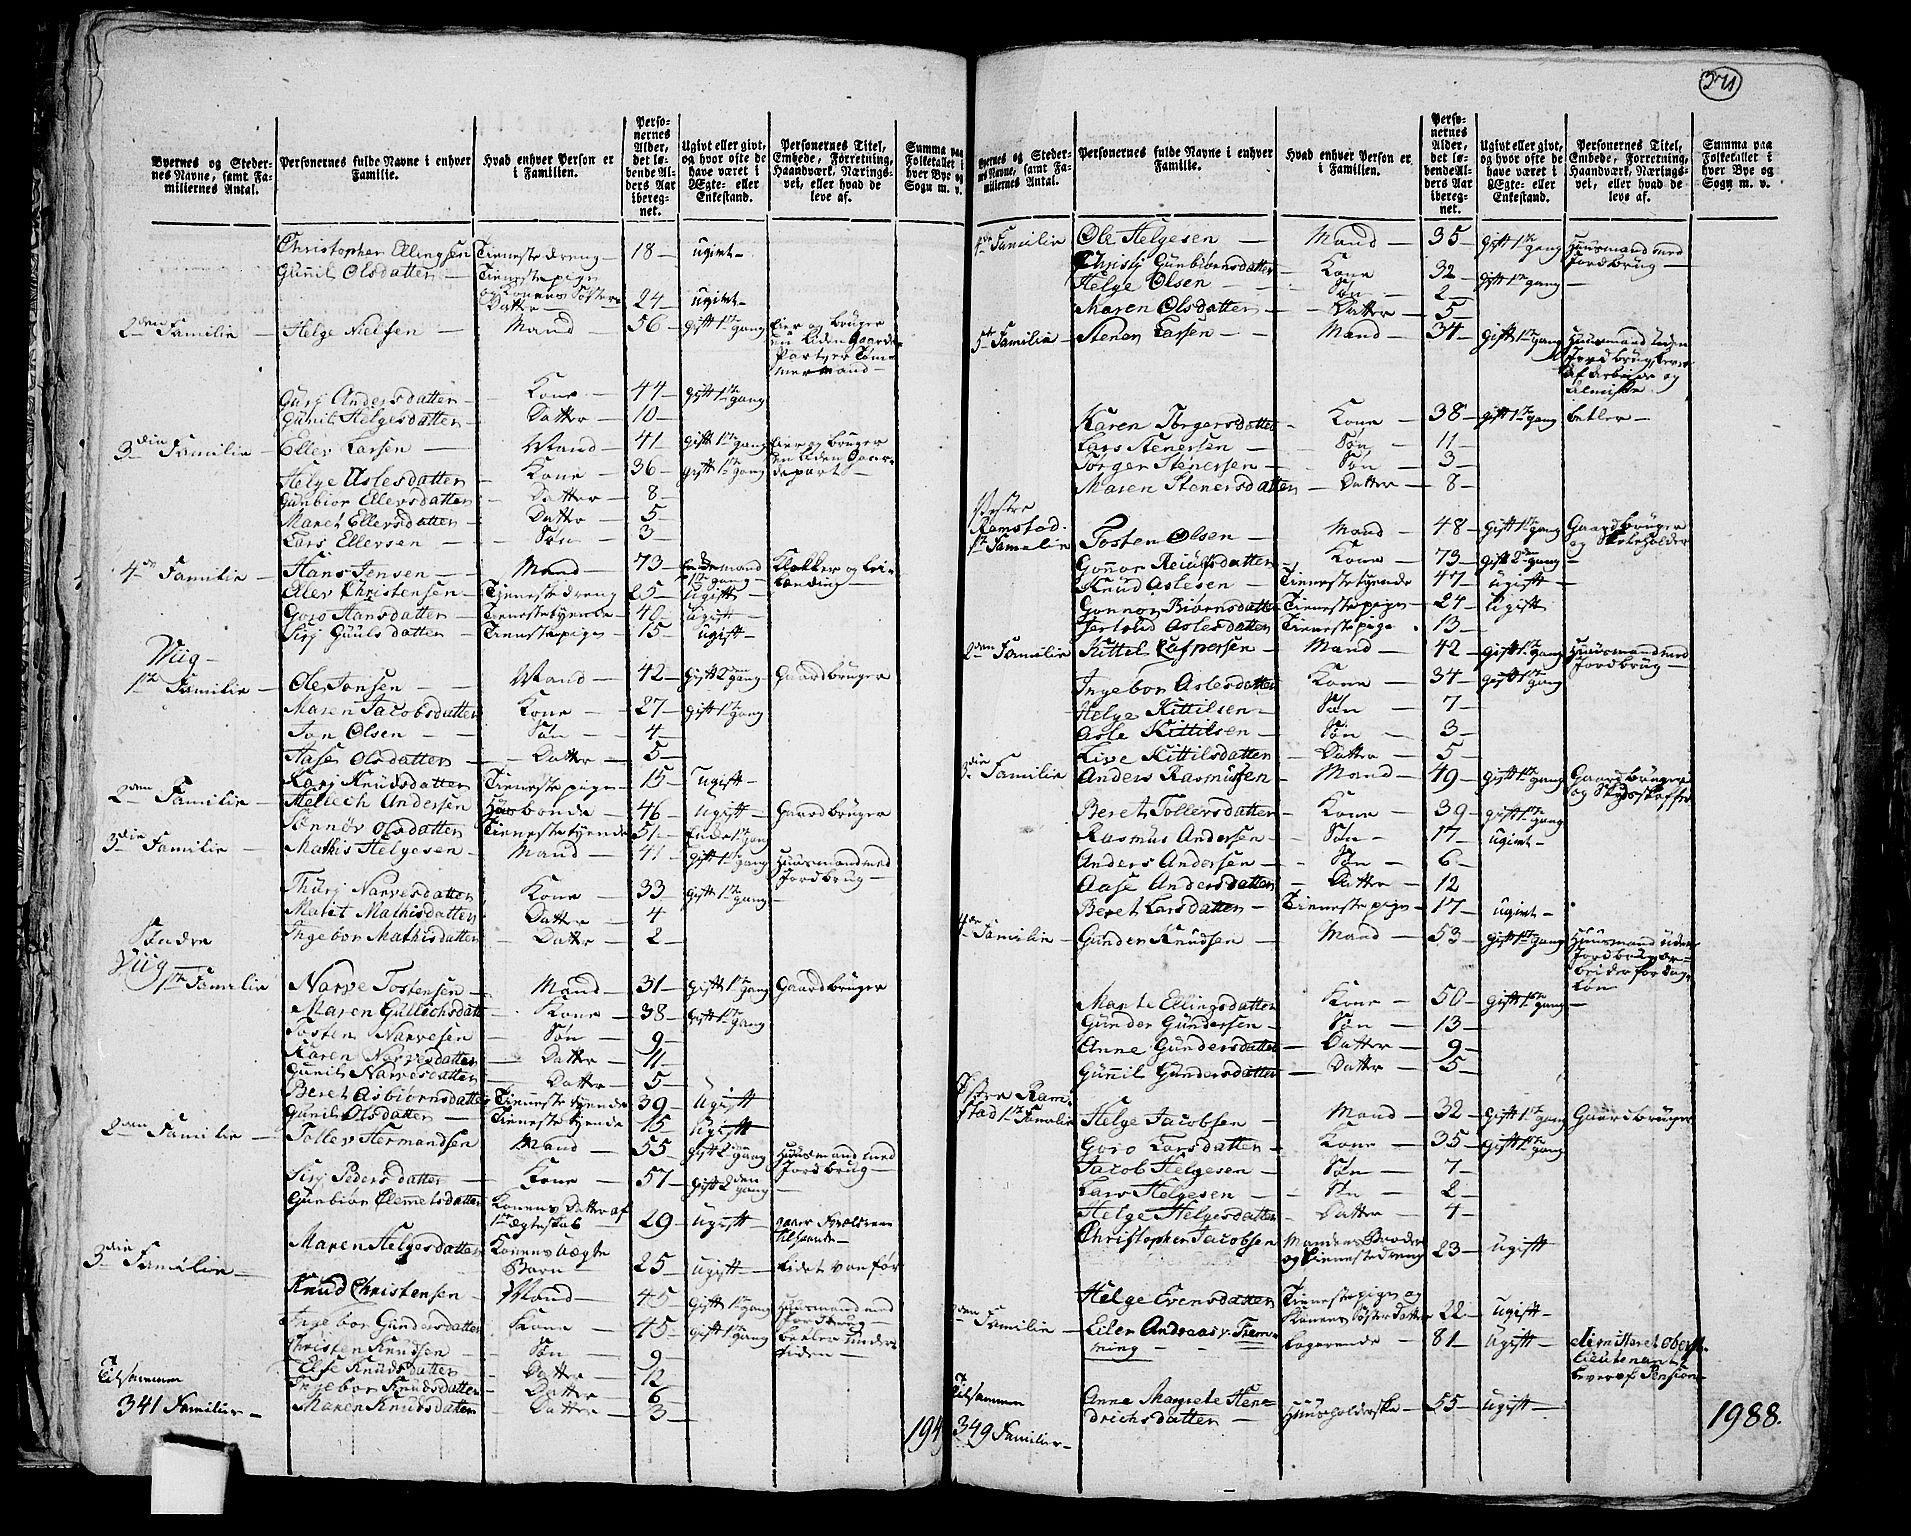 271
Byernes og Steder-
nes Navne, samt Fa-
miliernes Antal.
Personernes fulde Navne i enhver
Familie.
Hvad enhver Person er
i Familien.
Perso-
nernes
Alder,
det lø-
bende Al-
ders Aar
iberegnet.
Ugivt eller givt,
og hvor ofte de
have været i
Ægte- eller
Enkestand.
Personernes Titel,
Embede, Forretning,
Haandværk, Nærings-
vei, eller hvad de
leve af.
Summa paa
Folketallet i
hver Bye og
Sogn m. v.
Christopher Ellingsen Tieneste dreng 18 ugivt
Gunil Olsdatter Tieneste pige
og Konens Søsters
Datter 24 ugivt
2den Familie Helge Nielsen Mand 56 gift 1te gang Eier og bruger
en liden Gaarde
Part, er Tøm-
mermand
Gurj Andersdatter Kone 44 gift 1te gang
Gunil Helgesdatter Datter 10
3die Familie Eller Larsen Mand 41 gift 1te gang Eier og bruger
en liden Gaar-
depart
Helge Aslesdatter Kone 36 gift 1te gang
Gunbior Ellersdatter Datter 8
Maret Ellersdatter Datter 5
Lars Ellersen Søn 3
4de Familie Hans Jensen Mand 73 Enkemand
1te gang Klokker og
Eller Christensen Tieneste dreng 25 ugift
Goro Hansdatter Tienestetyende 40 ugift
Sirj Guulsdatter Tienestepige 15 ugift
Viig
1te Familie Ole Jonsen Mand 42 gift 2den gang Gaardbruger
Maren Jacobsdatter Kone 27 gift 1te gang
Jon Olsen Søn 4
Aase Olsdatter Datter 5
Karj Knudsdatter Tieneste pige 15 ugift
2den Familie Hellech Andersen Huusbonde 46 ugift Gaardbruger
Sønnøv Olsdatter Tienestetyende 51 Enke 1te gang
3die Familie Mathis Helgesen Mand 41 gift 1te gang Huusmand med
Jordbrug
Thurj Narvesdatter Kone 33 gift 1te gang
Malit Mathisdatter Datter 4
Ingebor Mathisdatter Datter 2
Søndre
Viig
1te Familie Narve Tostensen Mand 31 gift 1te gang Gaardbruger
Maren Gullechsdatt Kone 38 gift 1te gang
Tosten Narvesen Søn 9
Karen Narvesdatter Datter 11
Gunil Narvesdatter Datter 5
Beret Asbiørnsdatter Tienestetyende 39 ugift
Gunil Olsdatter Tienestetyende 15 ugift
2den Familie Tollev Hermandsen Mand 55 gift 2 gang Huusmand med
Jordbrug
Sirj Pedersdatter Kone 57 gift 2den gang
Gunbiør Clemetsdatter Konens Datter af
1te Ægteskab 29 ugift
Maren Helgesdatter Konens uægte
Barn 25 ugift lidet vanfør
3die Familie
Knud Christensen Mand 45 gift 1te gang Huusmand med
Jordbrug
Ingebor Gundersdatter Kone 45 gift 1te gang betler under
tiden
Christen Knudsen Søn 9
Else Knudsdatter Datter 12
Ingebor Knudsdatter Datter 6
Maren Knudsdatter Datter 3
Tilsammen
341 Familier
194
Byernes og Steder-
nes Navne, samt Fa-
miliernes Antal.
Personernes fulde Navne i enhver
Familie.
Hvad enhver Person er
i Familien.
Perso-
nernes
Alder,
det lø-
bende Al-
ders Aar
iberegnet.
Ugivt eller givt,
og hvor ofte de
have været i
Ægte- eller
Enkestand.
Personernes Titel,
Embede, Forretning,
Haandværk, Nærings-
vei, eller hvad de
leve af.
Summa paa
Folketallet i
hver Bye og
Sogn m. v.
4de Familie Ole Helgesen Mand 35 gift 1te gang Huusmand med
Jordbrug
Christj Gunbiørnsdatter Kone 32 gift 1te gang
Helge Olsen Søn 2
Maren Olsdatter Datter 5
5te Familie Stener Larsen Mand 34 gift 1te gang Huusmand uden
Jordbrug, lever
af Arbeide og
Almisse
Karen Torgersdatter Kone 38 gift 1te gang betler
Lars Stenersen Søn 11
Torger Stenersen Søn 3
Maren Stenersdatter Datter 8
Vestre
Ramstad
1te Familie Tosten Olsen Mand 48 gift 1te gang Gaardbruger
og
Gonnor Reiulfsdatter Kone 73 gift 2den gang
Knud Aslesen Tienestetyende 47 ugift
Gonnor Biørnsdatter Tienestepige 24 ugift
Aslesdatter Tienestepige 13
2den Familie Kittil Caspersen Mand 42 gift 1te gang Huusmand med
Jordbrug
Ingebor Aslesdatter Kone 34 gift 1te gang
Helge Kittilsen Søn 7
Asle Kittilsen Søn 3
Live Kittilsdatter Datter 5
3die Familie Anders Rasmussen Mand 49 gift 1te gang Gaardbruger
og Skydsskaffer
Beret Tollersdatter Kone 39 gift 1te gang
Rasmus Andersen Søn 17 ugivt
Anders Andersen Søn 6
Aase Andersdatter Datter 12
Beret Larsdatter Tienestepige 17 ugivt
4de Familie Gunder Knudsen Mand 53 gift 1te gang Huusmand uden
Jordbrug ar-
beider for dag-
løn
Marte Ellingsdatter Kone 50 gift 1te gang
Gunder Gundersen Søn 13
Anne Gundersdatter Datter 9
Gunnil Gundersdatter Datter 5
Østre Ram-
stad 1te Familie Helge Jacobsen Mand 32 gift 1te gang Gaardbruger
Goro Larsdatter Kone 35 gift 1te gang
Jacob Helgesen Søn 7
Lars Helgesen Søn 2
Helge Helgesdatter Datter 4
Christopher Jacobsen Mandens Broder
og Tienestedreng 23 ugift
Helge Evensdatter Tienestepige og
Konens Søster Datter 22 ugift
2den Familie Eiler Andreas v. Flem-
ming Logerende 81 ugift dimitteret Oberst-
lieutenant
lever af Pension
Anne Magrete Hen-
drichsdatter Huusholderske 55 ugift
Tilsammen
349 Familier
1988.